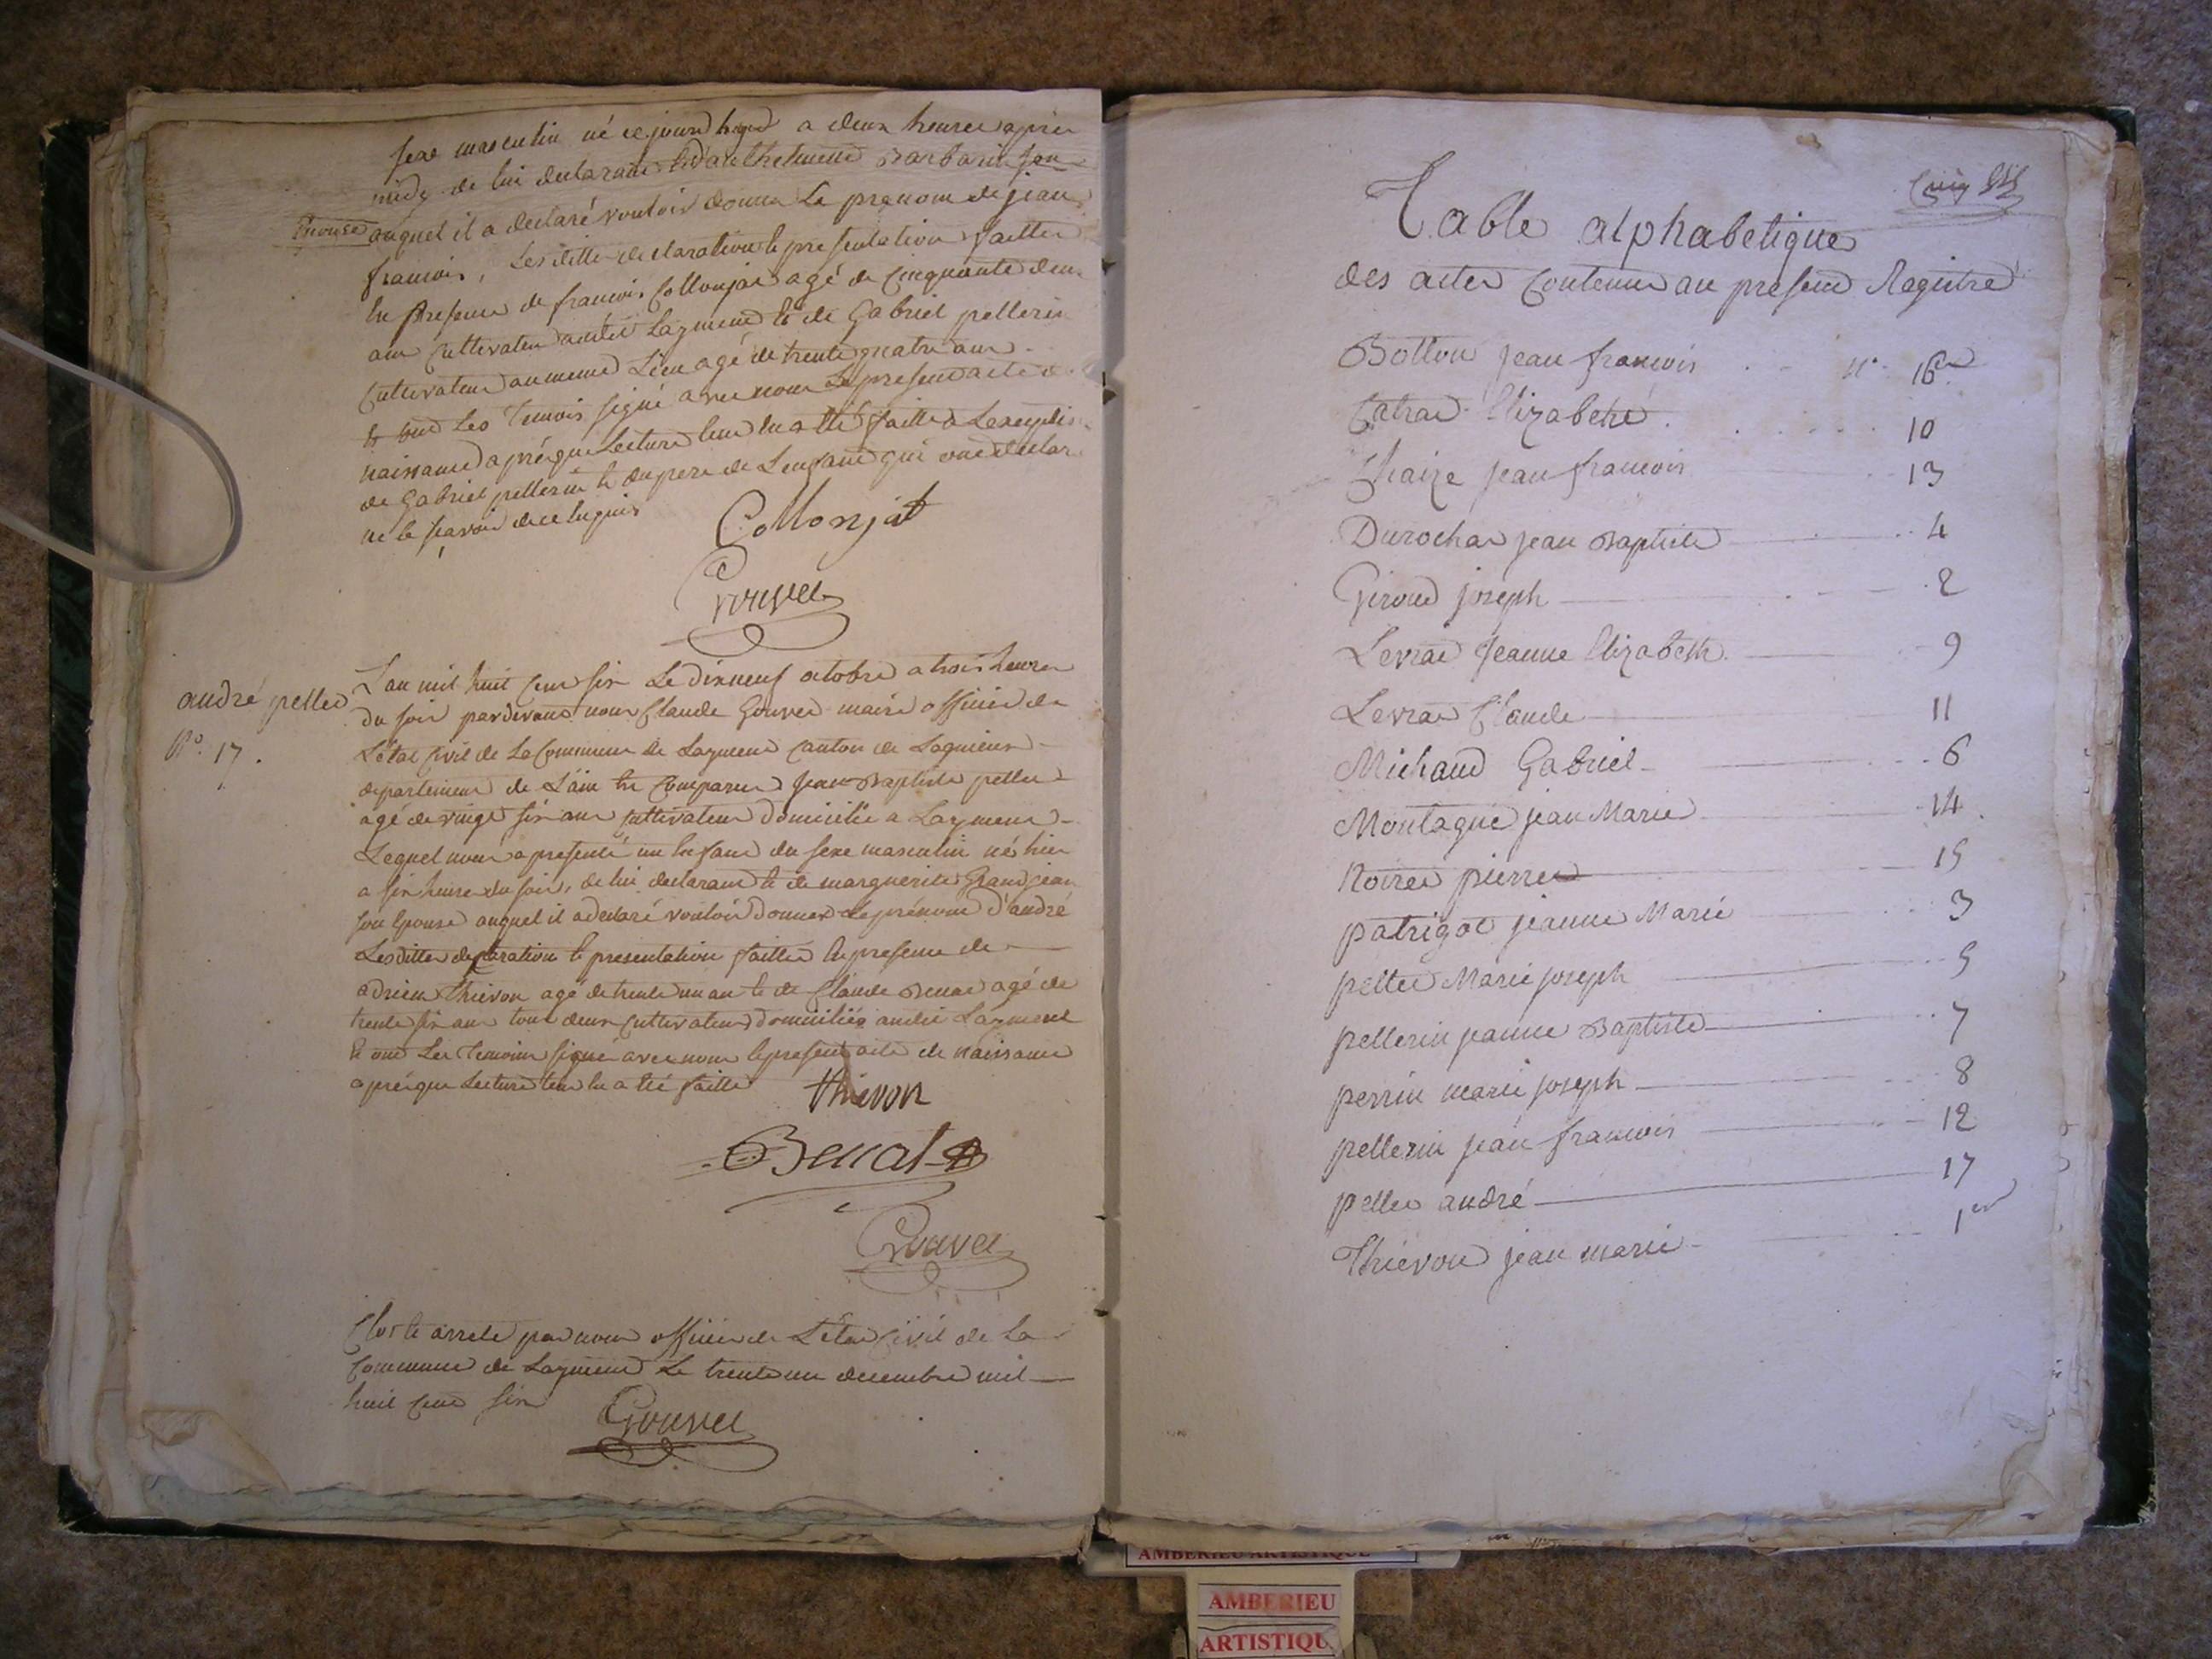 sexe masculin né ce jourd'huy a deux heures après
midy de lui declarant et d'anthelmette Barbarin son
Epouse auquel il a declaré vouloir donner le prenom de jean
francois, Lesdittes declaration et presentation faittes
En presence de francois Collonjat agé de Cinquante deux
ans Cultivateur audit Laymend et de Gabriel pellerin
Cultivateur au meme Lieu agé de trente quatre ans
Et ont Les Temoins signé avec nous Le present acte de
naissance aprés que Lecture leur en a Eté faitte a L'exeption
de Gabriel pellerin et du pere de L'enfant qui ont declaré
ne le savoir de ce enquis
Collonjat
Gouvet
andré pellet
N° 17.
L'an mil huit Cent six Le dixneuf octobre a trois heures
du soir pardevant nous Claude Gouvet maire officier de
L'état Civil de La Commune de Laymend Canton de Lagnieux
departement de L'ain Est Comparu Jean Baptiste pellet
agé de vingt six ans Cultivateur domicilié a Laymend
Lequel nous a presenté un Enfant du sexe masculin né hier
a six heures du soir, de lui declarant et de marguerite Grandjean
son Epouse auquel il a declaré vouloir donner le prénom d'andré
Lesdittes declaration et presentation faittes En presence de
adrien Thievon agé de trente un an et de Claude Benat agé de
trente six ans tous deux Cultivateurs domiciliés audit Laymend
Et ont Les Temoins signé avec nous le present acte de naissance
aprés que Lecture leur En a Eté faitte
thievon
Benat
Gouvet
Clos et arreté par nous officier de L'état Civil de La
Commune de Laymend Le trente un decembre mil
huit Cent six
Gouvet
Table alphabetique
des actes Contenus au present Registre
Botton Jean francois N° 16
Catrat Elizabeth 10
Chaize Jean francois 13
Durochat jean Baptiste 4
Giroud joseph 2
Levrat Jeanne Elizabeth 9
Levrat Claude 11
Michaud Gabriel 6
Montagne jean Marie 14
Noiret pierre 15
patrigot jeanne Marie 3
pellet Marie joseph 5
pellerin jeanne Baptiste 7
perrin marie joseph 8
pellerin jean francois 12
pellet andré 17
Thievon jean marie 1er
AMBERIEU ARTISTIQUE
AMBERIEU
ARTISTIQU